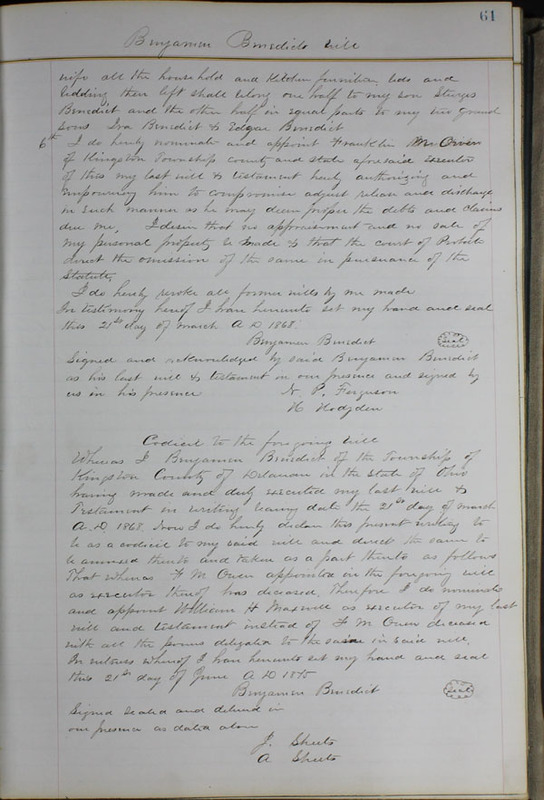 61
Benjamin Benedicts will
wife all the household and kitchen furniture beds and
bedding then left shall belong one half to my son Sturges
Benedict and the other half in equal parts to my two grand
sons Ira Benedict & Edgar Benedict
6th I do hereby nominate and appoint Franklin M Owen
of Kingston Township county and state aforesaid executor
of this my last will & testament hereby authorizing and
empowering him to compromise adjust release and discharge
in such manner as he may deem proper the debts and claims
due me. I desire that no appraisement and no sale of
my personal property be made & that the court of Probate
direct the omission of the same in pursuance of the
statute.
I do hereby revoke all former wills by me made
In testimony hereof I have hereunto set my hand and seal
this 21st day of march A D 1868.
Benjamin Benedict seal
Signed and acknowledged by said Benjamin Benedict
as his last will & testament in our presence and signed by
us in his presence N. P. Ferguson
H Hodgden
Codicil to the foregoing will
Whereas I Benjamin Benedict of the Township of
Kingston County of Delaware in the State of Ohio
having made and duly executed my last will &
Testament in writing bearing date the 21st day of march
A.D. 1868. Now I do hereby declare this present writing to
be as a codicil to my said will and direct the same to
be annexed thereto and taken as a part thereto as follows
That whereas F M Owen appointed in the foregoing will
as executor thereof has deceased, therefore I do nominate
and appoint William H Maxwell as executor of my last
will and testament instead of F M Owen deceased
with all the powers delegated to the same in said will.
In witness whereof I have hereunto set my hand and seal
this 21st day of June A D 1875
Benjamin Benedict seal
Signed sealed and delivered in
our presence as dated above
J. Sheets
A Sheets